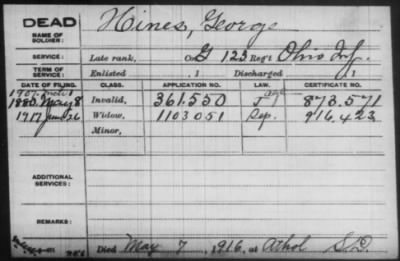 DEAD Hines, George
NAME OF SOLDIER:
SERVICE: Late rank, Co. G 123 Reg't Ohio Inf.
TERM OF SERVICE: Enlisted , 1 Discharged , 1
DATE OF FILING. CLASS. APPLICATION NO. LAW. CERTIFICATE NO.
1880 May 8 Invalid, 361.550 J age 873.571
1917 Jun 26 Widow, 1103051 Rep. 916.423
Minor,
ADDITIONAL SERVICES:
REMARKS:
Died May 7, 1916, at Athol S.D.